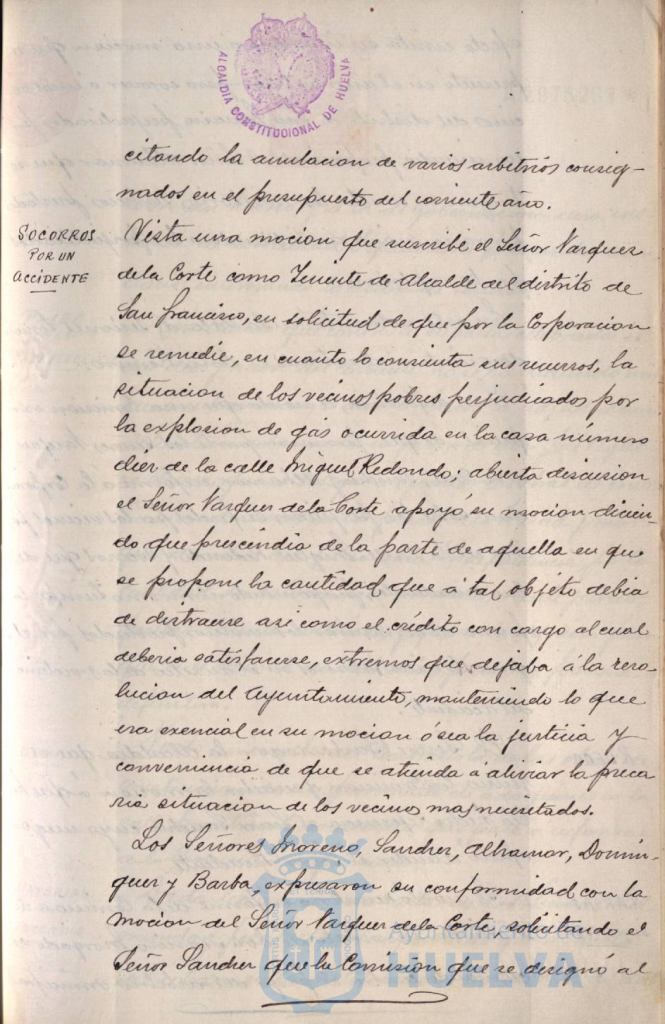 ALCALDIA CONSTITUCIONAL DE HUELVA
citando la anulacion de varios arbitrios consig-
nados en el presupuesto del corriente año.
SOCORROS
POR UN
ACCIDENTE
Vista una mocion que suscribe el Señor Vazquez
de la Corte como Teniente de Alcalde del distrito de
San Francisco, en solicitud de que por la Corporacion
se remedie, en cuanto lo consienta sus recursos, la
situacion de los vecinos pobres perjudicados por
la explosion de gas ocurrida en la casa número
diez de la calle Miguel Redondo; abierta discusion
el Señor Vazquez de la Corte apoyó su mocion dicien-
do que prescindia de la parte de aquella en que
se propone la cantidad que á tal objeto debia
de distraerse asi como el crédito con cargo al cual
deberia satisfacerse, extremos que dejaba á la reso
lucion del Ayuntamiento, manteniendo lo que
era esencial en su mocion ó sea la justicia y
conveniencia de que se atienda á aliviar la preca
ria situacion de los vecinos mas necesitados.
Los Señores Moreno, Sanchez, Alhamar, Domin-
guez y Barba, expresaron su conformidad con la
mocion del Señor Vazquez de la Corte, solicitando el
Señor Sanchez que la Comision que se designó al
Ayuntamiento de
HUELVA